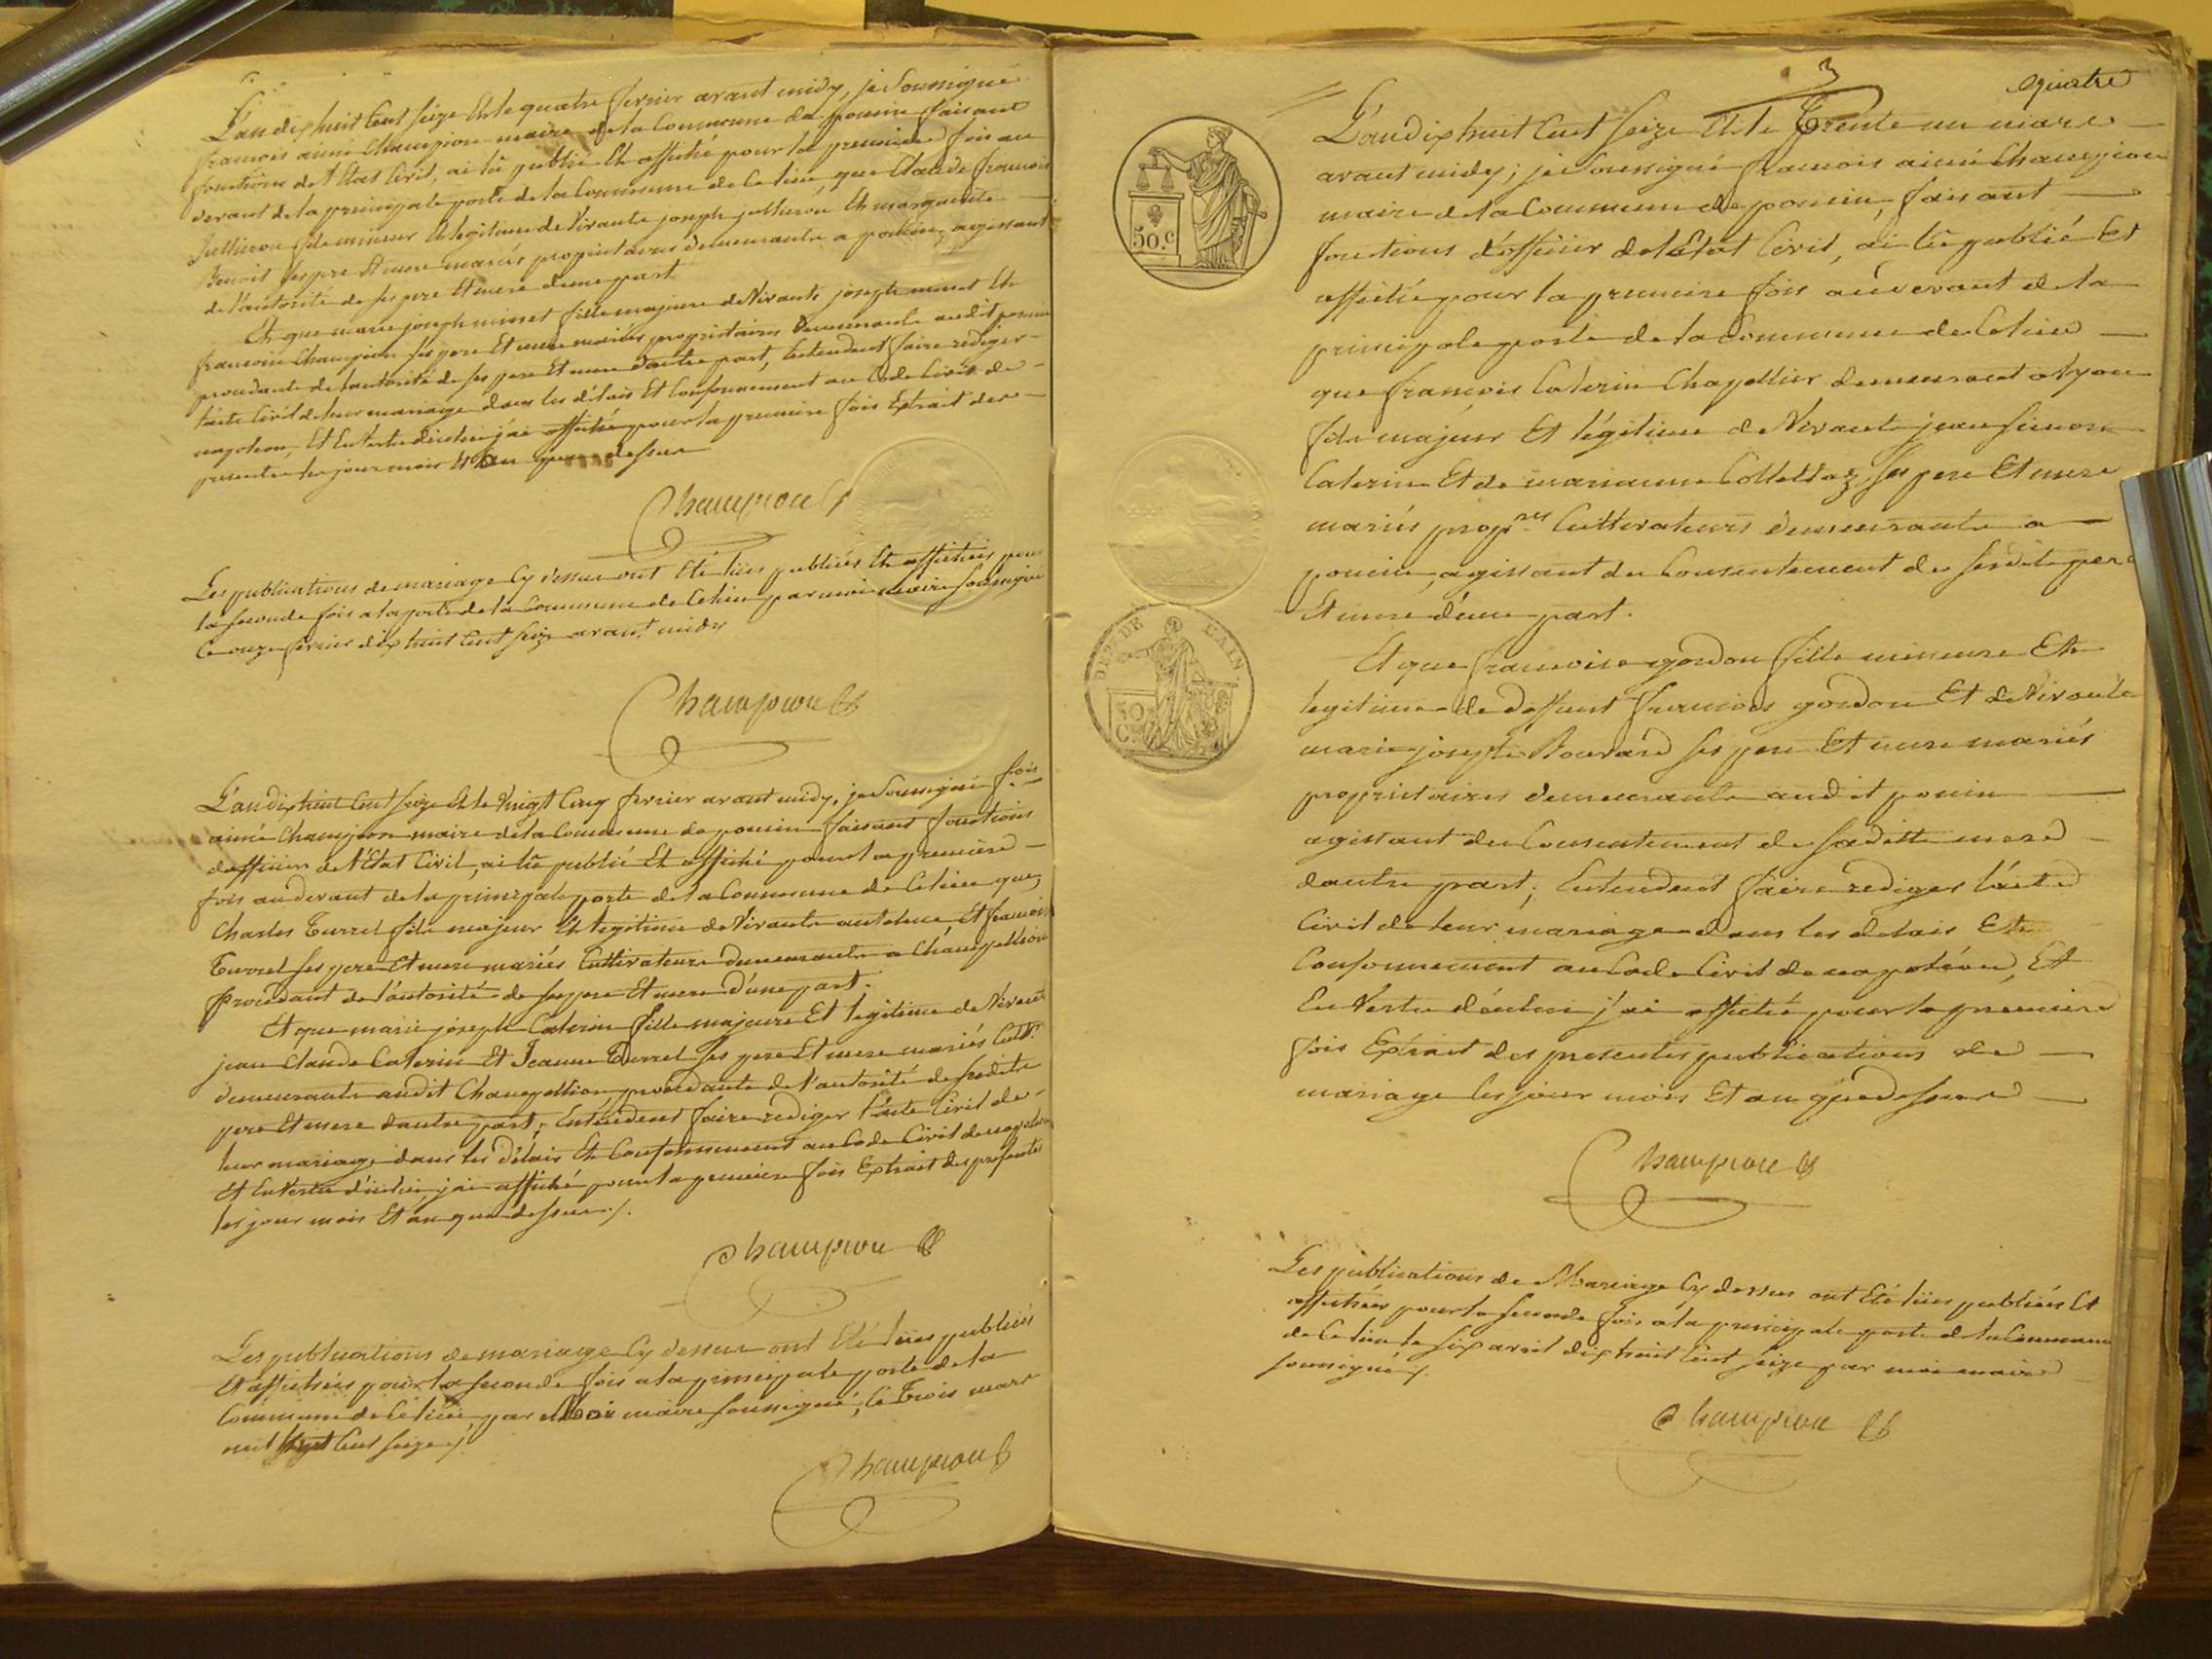 L'an dix huit Cent Seize Et le quatre fevrier avant midy, je Soussigné
francois aimé Champion maire de la Commune de poncin faisant
fonctions de l'Etat Civil, ai lû publié Et affiché pour la premiere fois au
devant de la principale porte de la Commune de Ce lieu, que Claude francois
fils mineur Et legitime de Vivants joseph Et marguerite
Benoit ses pere Et mere mariés propriétaires demeurants a poncin, agissant
de l'autorité de ses pere Et mere d'une part
Et que marie joseph minet fille majeure de Vivants joseph minet Et
francoise Champion ses pere Et mere mariés propriétaires demeurants audit poncin
procedante de l'autorité de ses pere Et mere d'autre part, Entendent faire rediger
l'acte Civil de leur mariage dans les délais Et Conformement au Code Civil de
napoleon, Et En Vertu d'icelui j'ai affiché pour la premiere fois Extrait des
presentes les jour mois Et an que dessus
Champion
Les publications de mariage Cy dessus ont Eté lües publiés Et affichés pour
la seconde fois a la porte de la Commune de Ce lieu par moi maire soussigné
Ce onze fevrier dix huit Cent seize avant midy
Champion
L'an dix huit Cent seize Et le Vingt Cinq fevrier avant midy, je Soussigné fois
aimé Champion maire de la Commune de poncin faisant fonctions
d'officier de l'Etat Civil, ai lû publié Et affiché pour la premiere
fois au devant de la principale porte de la Commune de Ce lieu que,
Charles Turrel fils majeur Et legitime de Vivants anthelme Et francoise
Turrel ses pere Et mere mariés Cultivateurs demeurants a Champellion
procedant de l'autorité de ses pere Et mere D'une part.
Et que marie joseph Caterin fille majeure Et legitime de Vivants
jean Claude Caterin Et Jeanne Turrel ses pere Et mere mariés Cultrs
demeurants audit Champellion, procedante de l'autorité de sesdits
pere Et mere d'autre part, Entendent faire rediger l'acte Civil de
leur mariage dans les délais Et Conformement au Code Civil de napoleon
Et En Vertu d'icelui, j'ai affiché pour la premiere fois Extrait des presentes
les jour mois Et an que dessus ./.
Champion
Les publications de mariage Cy dessus ont Eté lües publiés
Et affichés pour la seconde fois a la principale porte de la
Commune de Ce lieu, par Moi maire soussigné, le Trois mars
mil Cent seize ./.
Champion
3
quatre
L'an dix huit Cent Seize Et le Trente un mars
avant midy; je Soussigné francois aimé Champion
maire de la Commune de poncin, faisant
fonctions d'officier de l'Etat Civil, ai lû publié Et
affiché pour la premiere fois au devant de la
principale porte de la Commune de Ce lieu
que françois Caterin Chapellier demeurant a Lyon
fils majeur Et légitime de Vivants jean simon
Caterin Et de marianne Collettaz, ses pere Et mere
mariés propres Cultivateurs demeurants a
poncin, agissant du Consentement de sesdits pere
Et mere d'une part.
Et que francoise gordon fille mineure Et
legitime de deffunt francois gordon Et de Vivante
marie josephe Bouvard ses pere Et mere mariés
propriétaires demeurants audit poncin
agissant du Consentement de sa ditte mere
d'autre part; Entendent faire rediger l'acte
Civil de leur mariage dans les delais Et
Conformement au Code Civil de napoléon, Et
En Vertu d'icelui j'ai affiché pour la premiere
fois Extrait des presentes publications de
mariage les jour mois Et an que dessus
Champion
Les publications de Mariage Cy dessus ont Eté lües publiées Et
affichées pour la seconde fois a la principale porte de la Commune
de Ce lieu le six avril dix huit Cent seize par moi maire
soussigné ./.
Champion
50.c
DEPT. DE L'AIN
50
C.